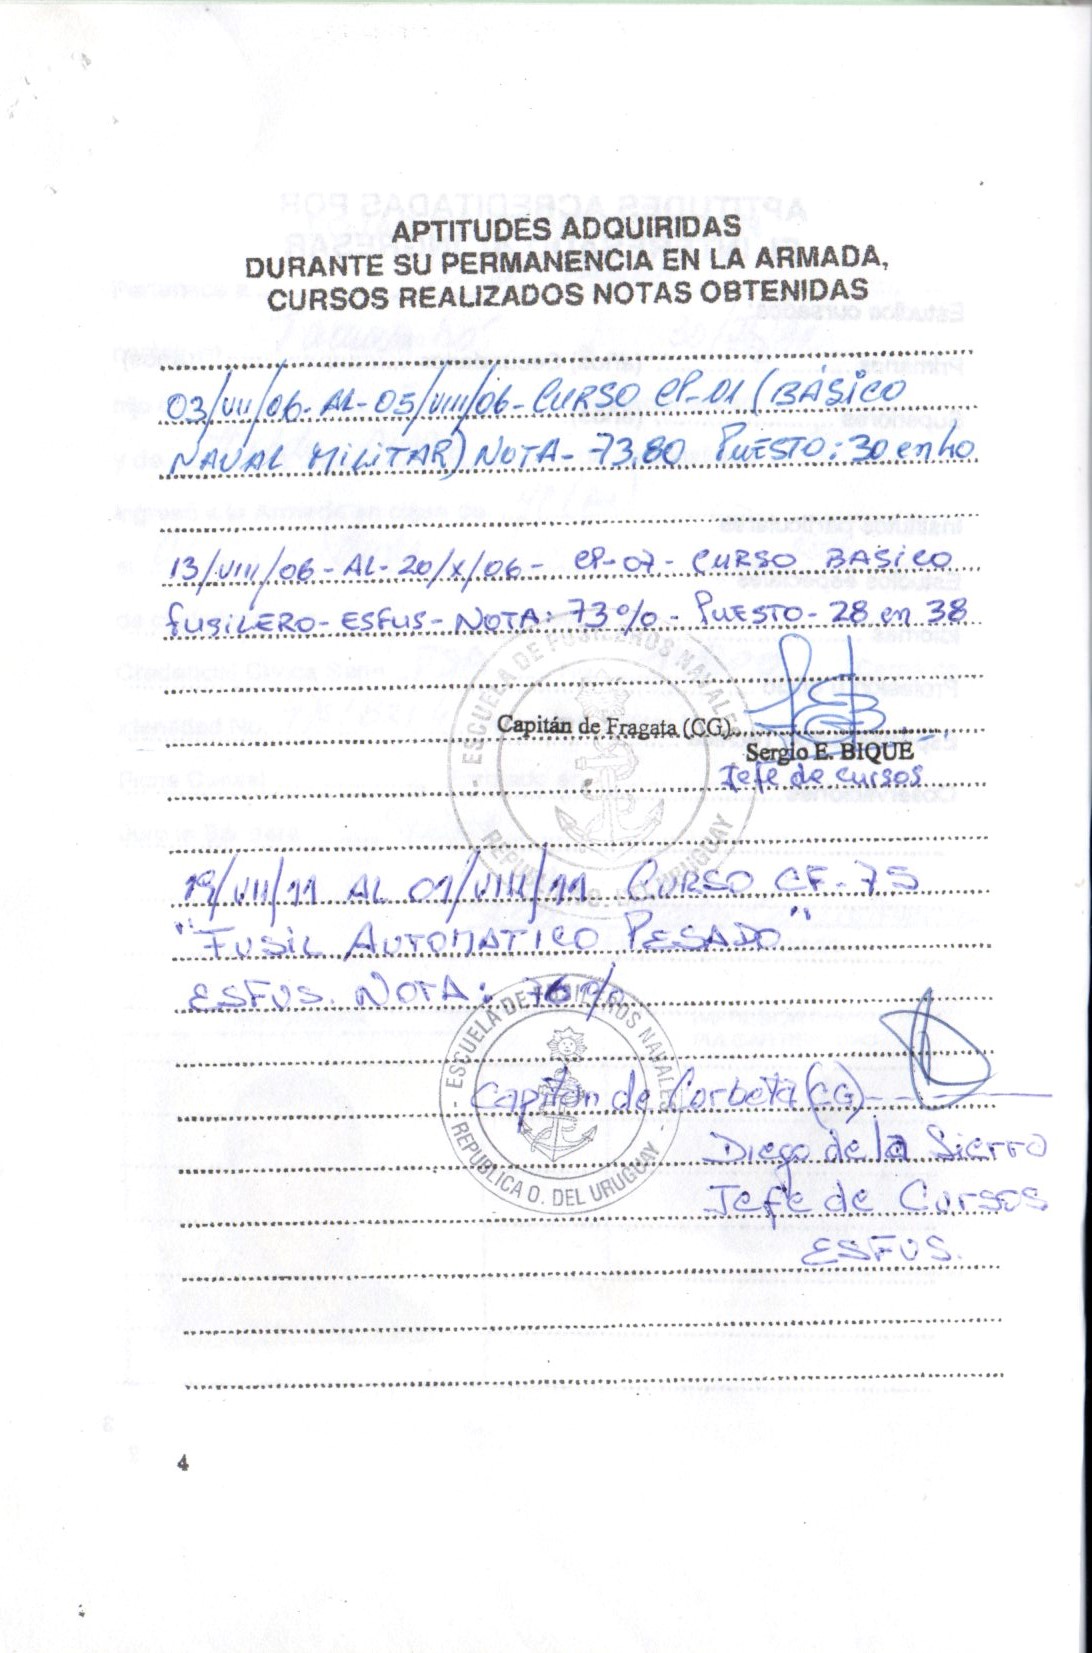 APTITUDES ADQUIRIDAS
DURANTE SU PERMANENCIA EN LA ARMADA,
CURSOS REALIZADOS NOTAS OBTENIDAS
03/VII/06-AL-05/VIII/06-CURSO CP-01 (BÁSICO
NAVAL MILITAR) NOTA- 73,80 PUESTO: 30 en 40
13/VIII/06-AL-20/X/06- CP-07- CURSO BASICO
FUSILERO-ESFUS-NOTA: 73%- PUESTO-28 en 38
- ESCUELA DE FUSILEROS NAVALES -
REPUBLICA O. DEL URUGUAY
Capitán de Fragata (CG)
Sergio E. BIQUE
Jefe de cursos
19/VII/11 AL 01/VIII/11 CURSO CF-75
"FUSIL AUTOMATICO PESADO"
ESFUS. NOTA: 76%
- ESCUELA DE FUSILEROS NAVALES -
REPUBLICA O. DEL URUGUAY
Capitán de Corbeta (CG)
Diego de la Sierra
Jefe de Cursos
ESFUS.
4